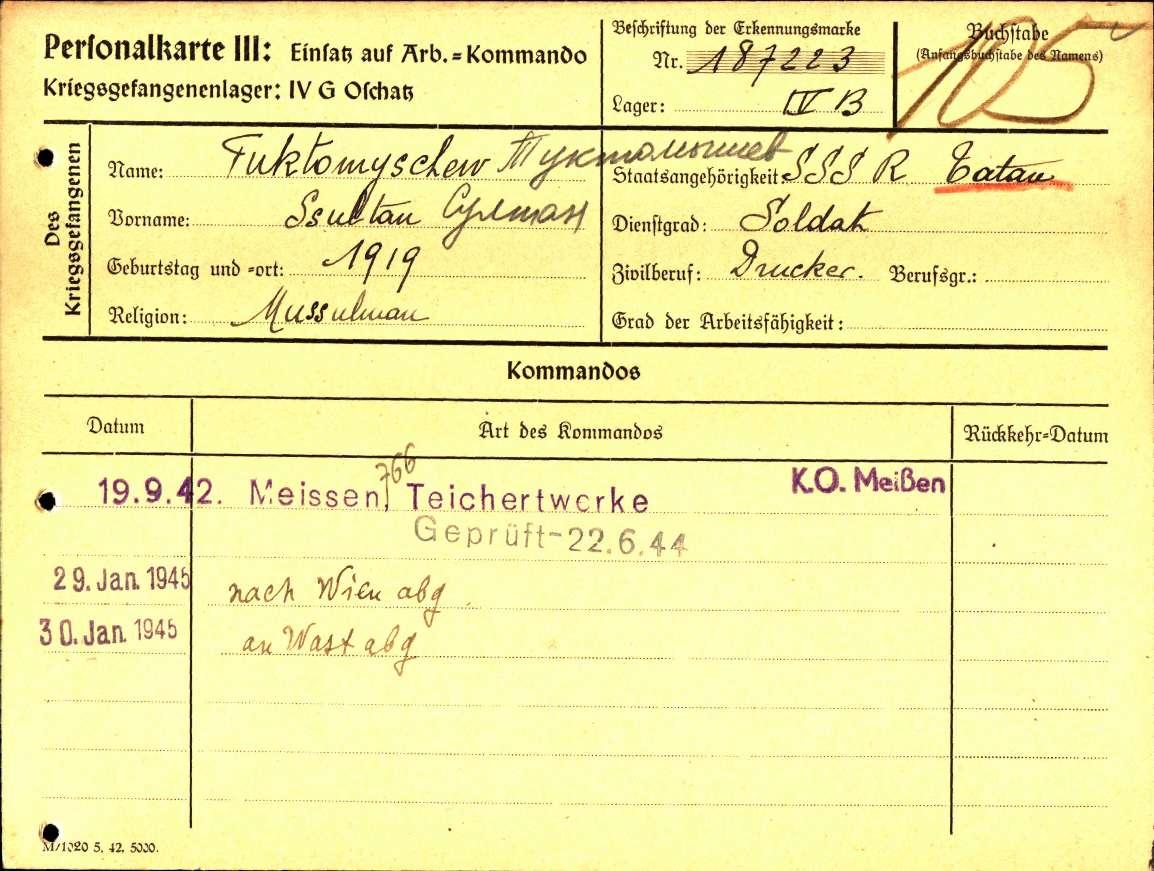 Personalkarte III: Einsatz auf Arb.=Kommando
Kriegsgefangenenlager: IV G Oschatz
Beschriftung der Erkennungsmarke
Nr. 187223
Lager: IV B
Buchstabe
(Anfangsbuchstabe des Namens)
105
Des Kriegsgefangenen
Name: Tuktomyschew Туктомышев
Vorname: Ssultan Султан
Geburtstag und =ort: 1919
Religion: Mussulman
Staatsangehörigkeit: SSSR Tatar
Dienstgrad: Soldat
Zivilberuf: Drucker. Berufsgr.:
Grad der Arbeitsfähigkeit:
Kommandos
Datum Art des Kommandos Rückkehr=Datum
766
19.9.42. Meissen, Teichertwerke K.O. Meißen
Geprüft-22.6.44
29. Jan. 1945 nach Wien abg
30. Jan. 1945 an Wast abg
M/1020 5. 42. 5000.